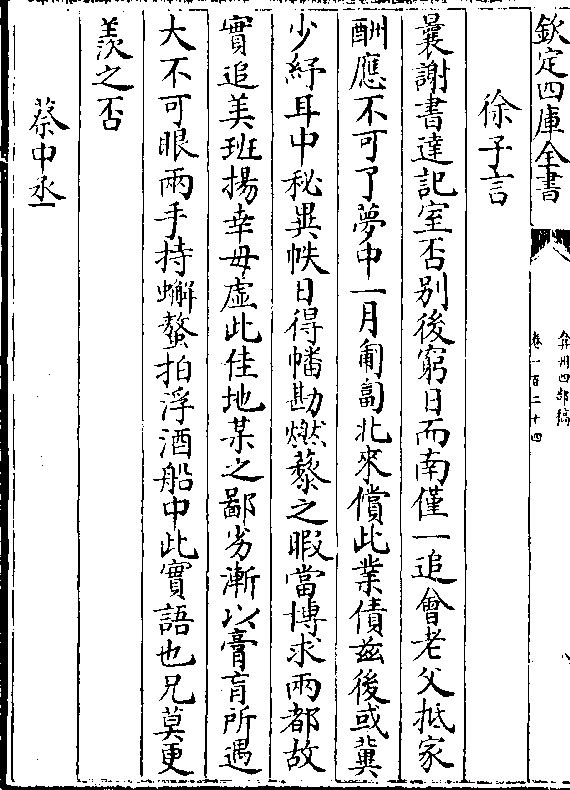 欽定四庫全書
弇州四部稿
卷一百二十四
八
徐子言
曩謝書達記室否别後窮日而南僅一追會老父抵家
酬應不可了夢中一月匍匐北來償此業債兹後或冀
少紓耳中秘異帙日得幡勘燃藜之暇當博求兩都故
實追美班揚幸毋虚此佳地某之鄙劣漸以膏肓所遇
大不可眼兩手持蠏螯拍浮酒船中此實語也兄莫更
羨之否
蔡中丞